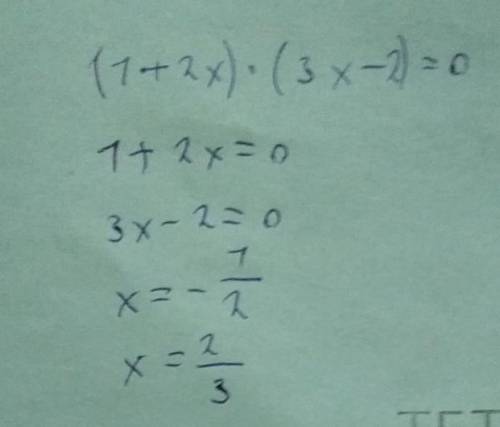 (1+2x)·(3x-2)=0
1+2x=0
3x-2=0
x=-1/2
x=2/3